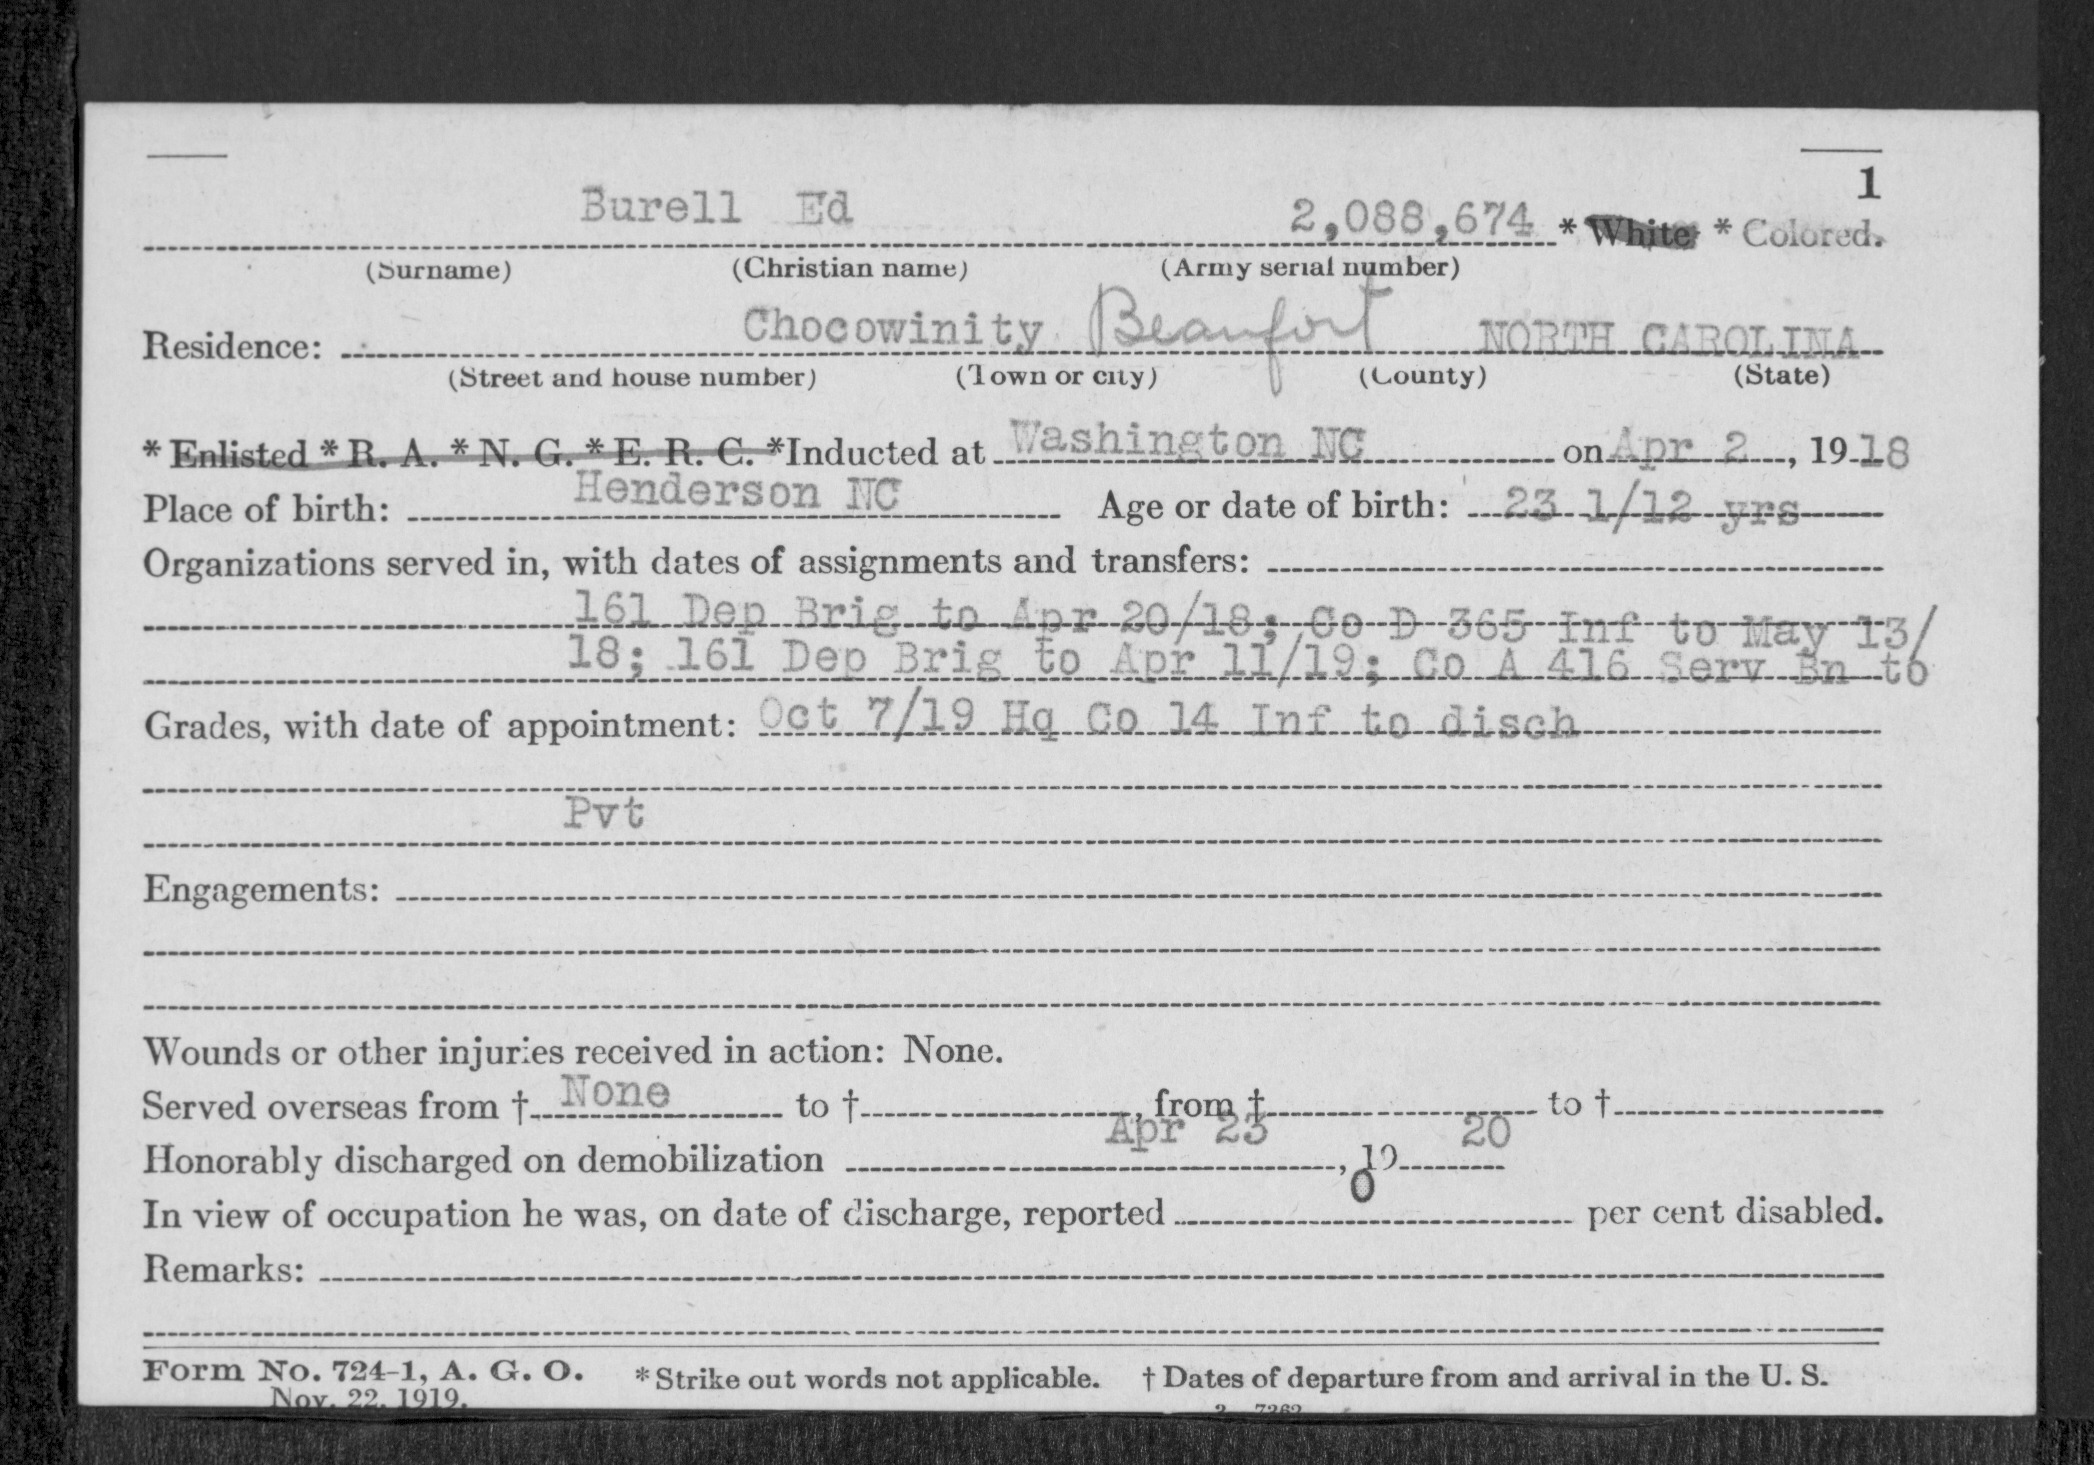 1
Burell Ed 2,088,674 * White * Colored.
(Surname) (Christian name) (Army serial number)
Residence: Chocowinity Beaufort NORTH CAROLINA
(Street and house number) (Town or city) (County) (State)
* Enlisted * R. A. * N. G. * E. R. C. *Inducted at Washington NC on Apr 2, 1918
Place of birth: Henderson NC Age or date of birth: 23 1/12 yrs
Organizations served in, with dates of assignments and transfers:
161 Dep Brig to Apr 20/18; Co D 365 Inf to May 13/
18; 161 Dep Brig to Apr 11/19; Co A 416 Serv Bn to
Grades, with date of appointment: Oct 7/19 Hq Co 14 Inf to disch
Pvt
Engagements:
Wounds or other injuries received in action: None.
Served overseas from † None to †, from † to †
Honorably discharged on demobilization Apr 23, 1920
In view of occupation he was, on date of discharge, reported 0 per cent disabled.
Remarks:
Form No. 724-1, A. G. O. * Strike out words not applicable. † Dates of departure from and arrival in the U. S.
Nov. 22, 1919. 3—7362